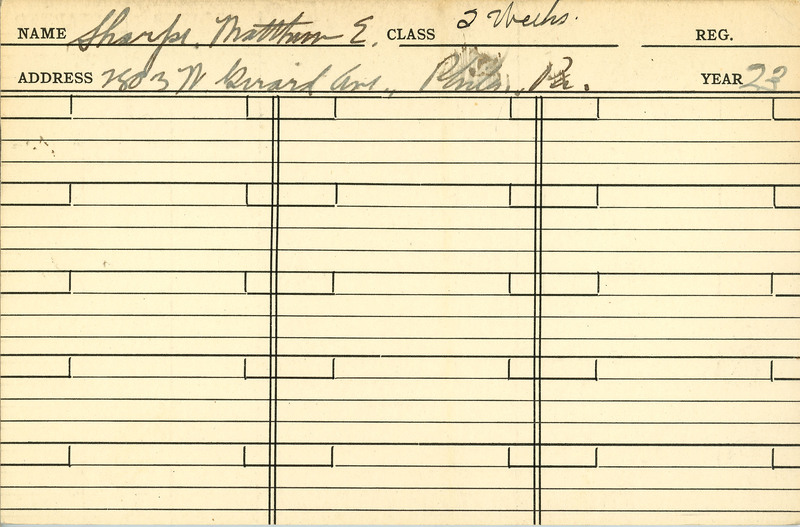 NAME Sharpe, Matthew E. CLASS 2 Weeks. REG.
ADDRESS 2303 N Girard Ave., Phila., Pa. YEAR 23